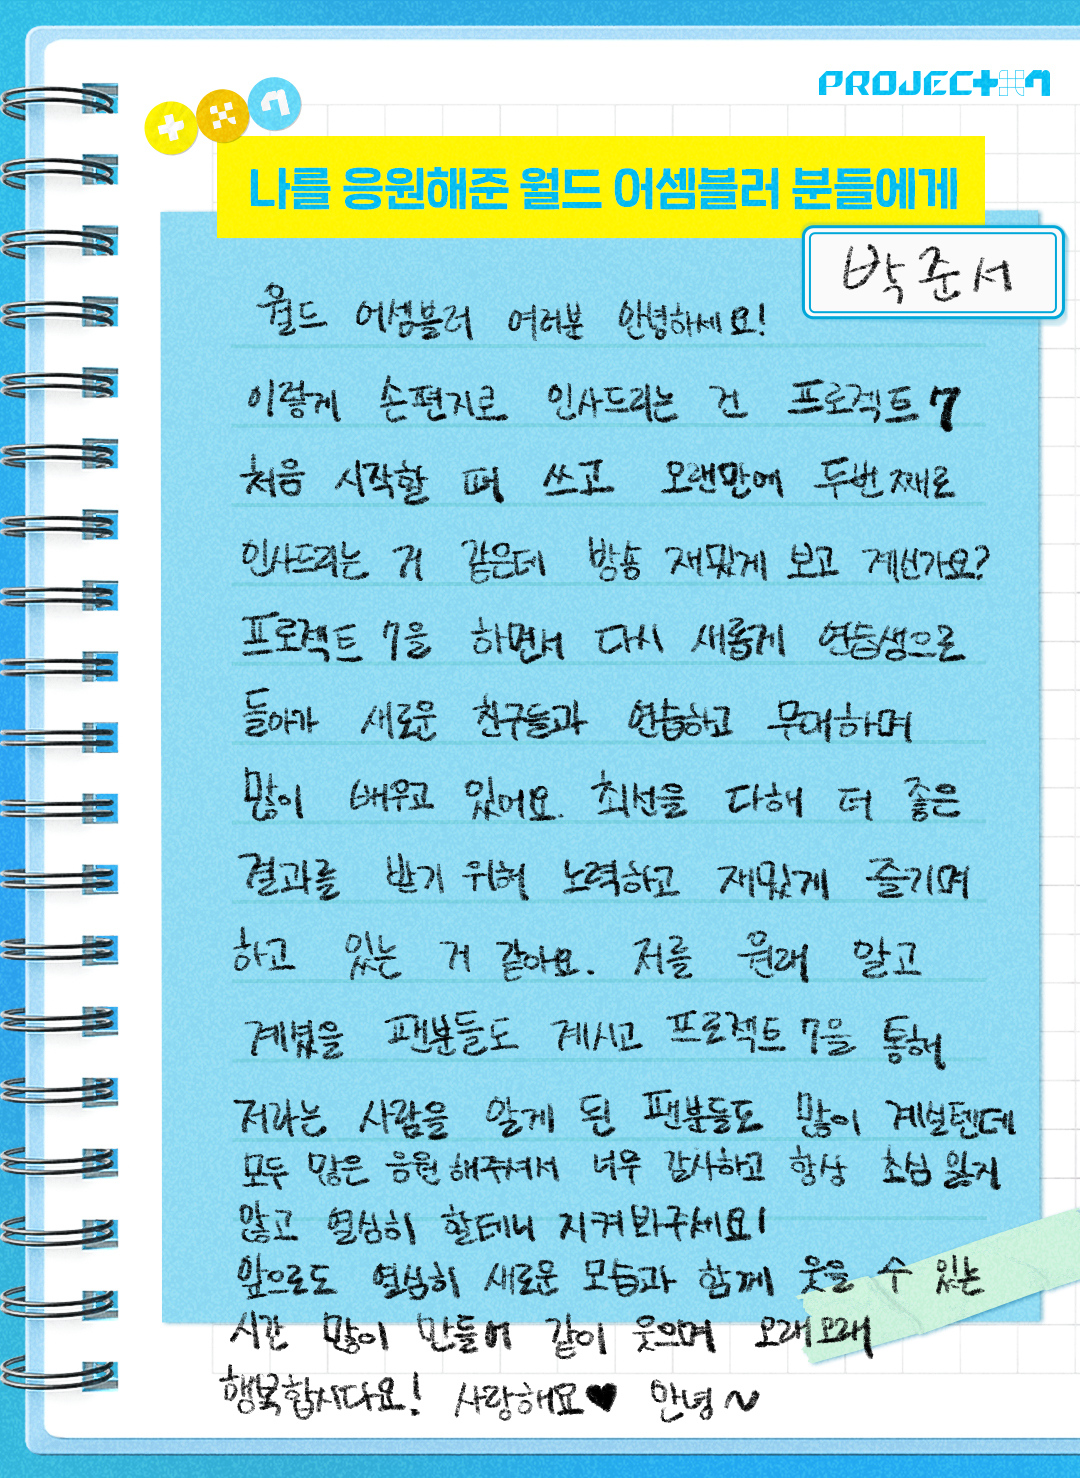 PROJECT 7
나를 응원해준 월드 어셈블러 분들에게
박준서
월드 어셈블러 여러분 안녕하세요!
이렇게 손편지로 인사드리는 건 프로젝트7
처음 시작할 때 쓰고 오랜만에 두번째로
인사드리는 거 같은데 방송 재밌게 보고 계신가요?
프로젝트 7을 하면서 다시 새롭게 연습생으로
돌아가 새로운 친구들과 연습하고 무대하며
많이 배우고 있어요. 최선을 다해 더 좋은
결과를 받기 위해 노력하고 재밌게 즐기며
하고 있는 거 같아요. 저를 원래 알고
계셨을 팬분들도 계시고 프로젝트 7을 통해
저라는 사람을 알게 된 팬분들도 많이 계실텐데
모두 많은 응원해주셔서 너무 감사하고 항상 초심 잃지
않고 열심히 할테니 지켜봐주세요!
앞으로도 열심히 새로운 모습과 함께 웃을 수 있는
시간 많이 만들어 같이 웃으며 오래오래
행복합시다요! 사랑해요♥ 안녕~